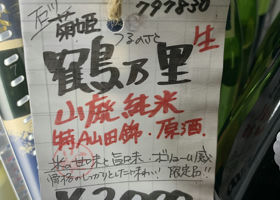 797830
石川
菊姫
つるのさと
鶴乃里 生
山廃純米
特A山田錦・原酒.
米の甘味と旨味・ボリューム感
骨格のしっかりとした味わい! 限定品!!